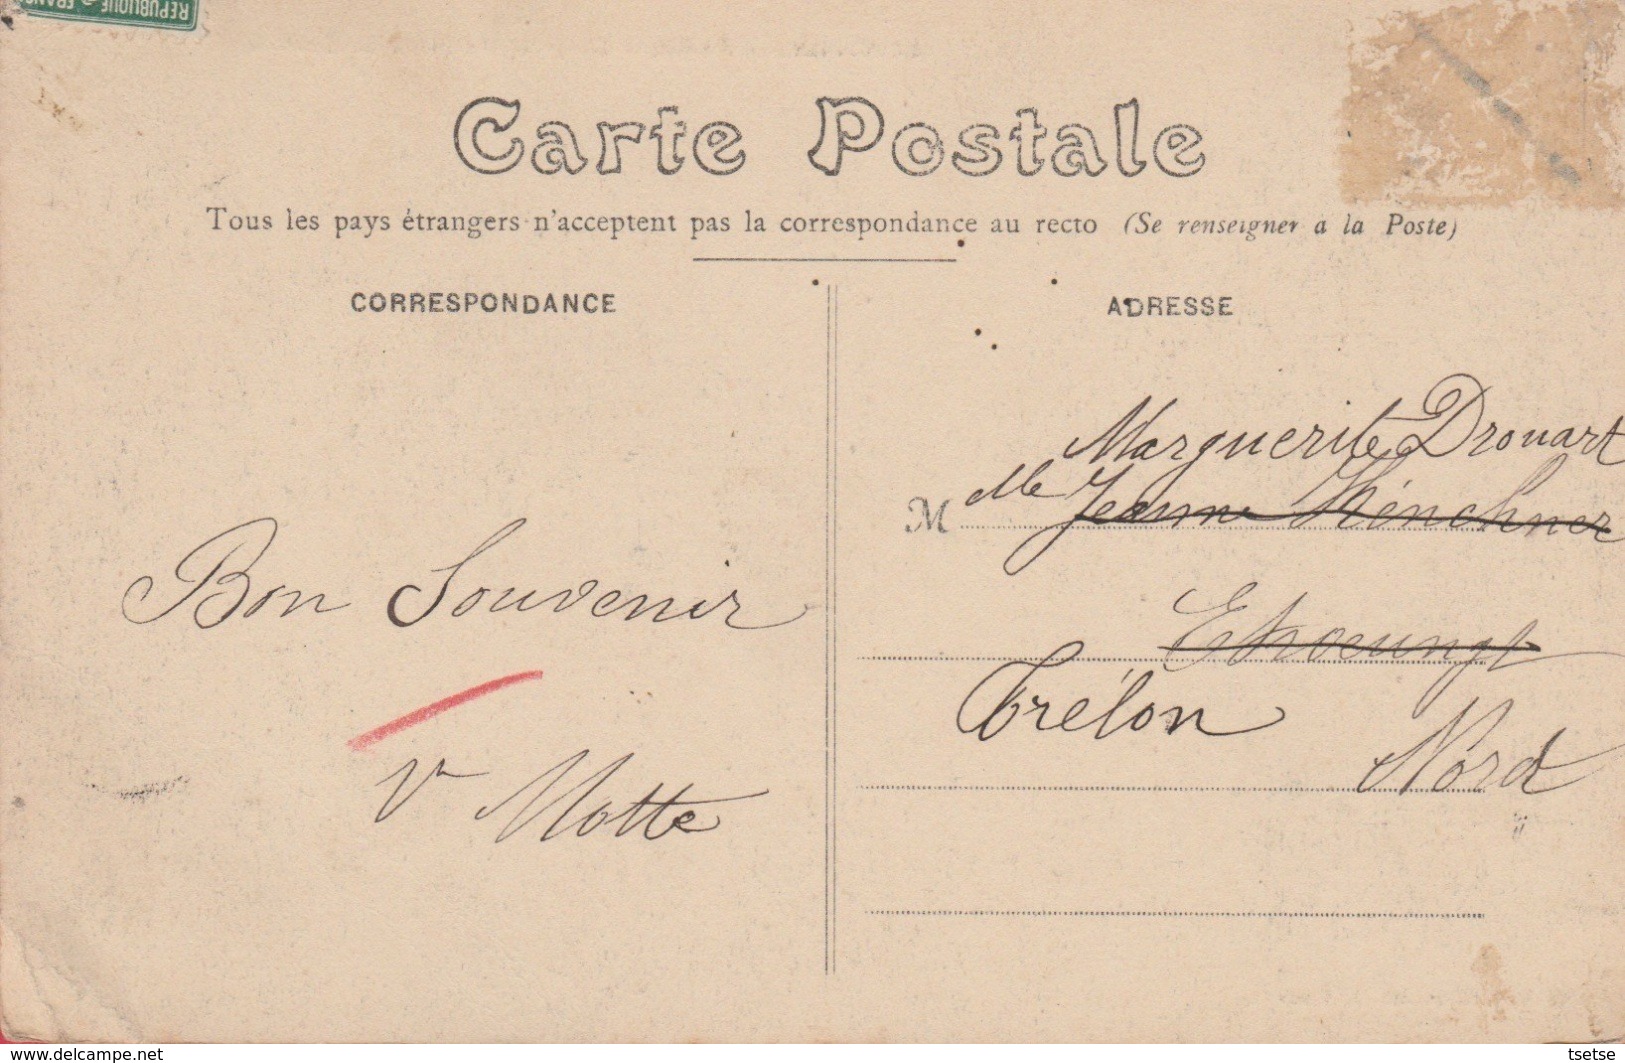 REPUBLIQUE FRANC
Carte Postale
Tous les pays étrangers n'acceptent pas la correspondance au recto (Se renseigner a la Poste)
CORRESPONDANCE
ADRESSE
Marguerite Drouart
M elle Jeanne
Bon Souvenir
Etroeungt
Trélon
Nord
Vve Motte
www.delcampe.net
tsetse